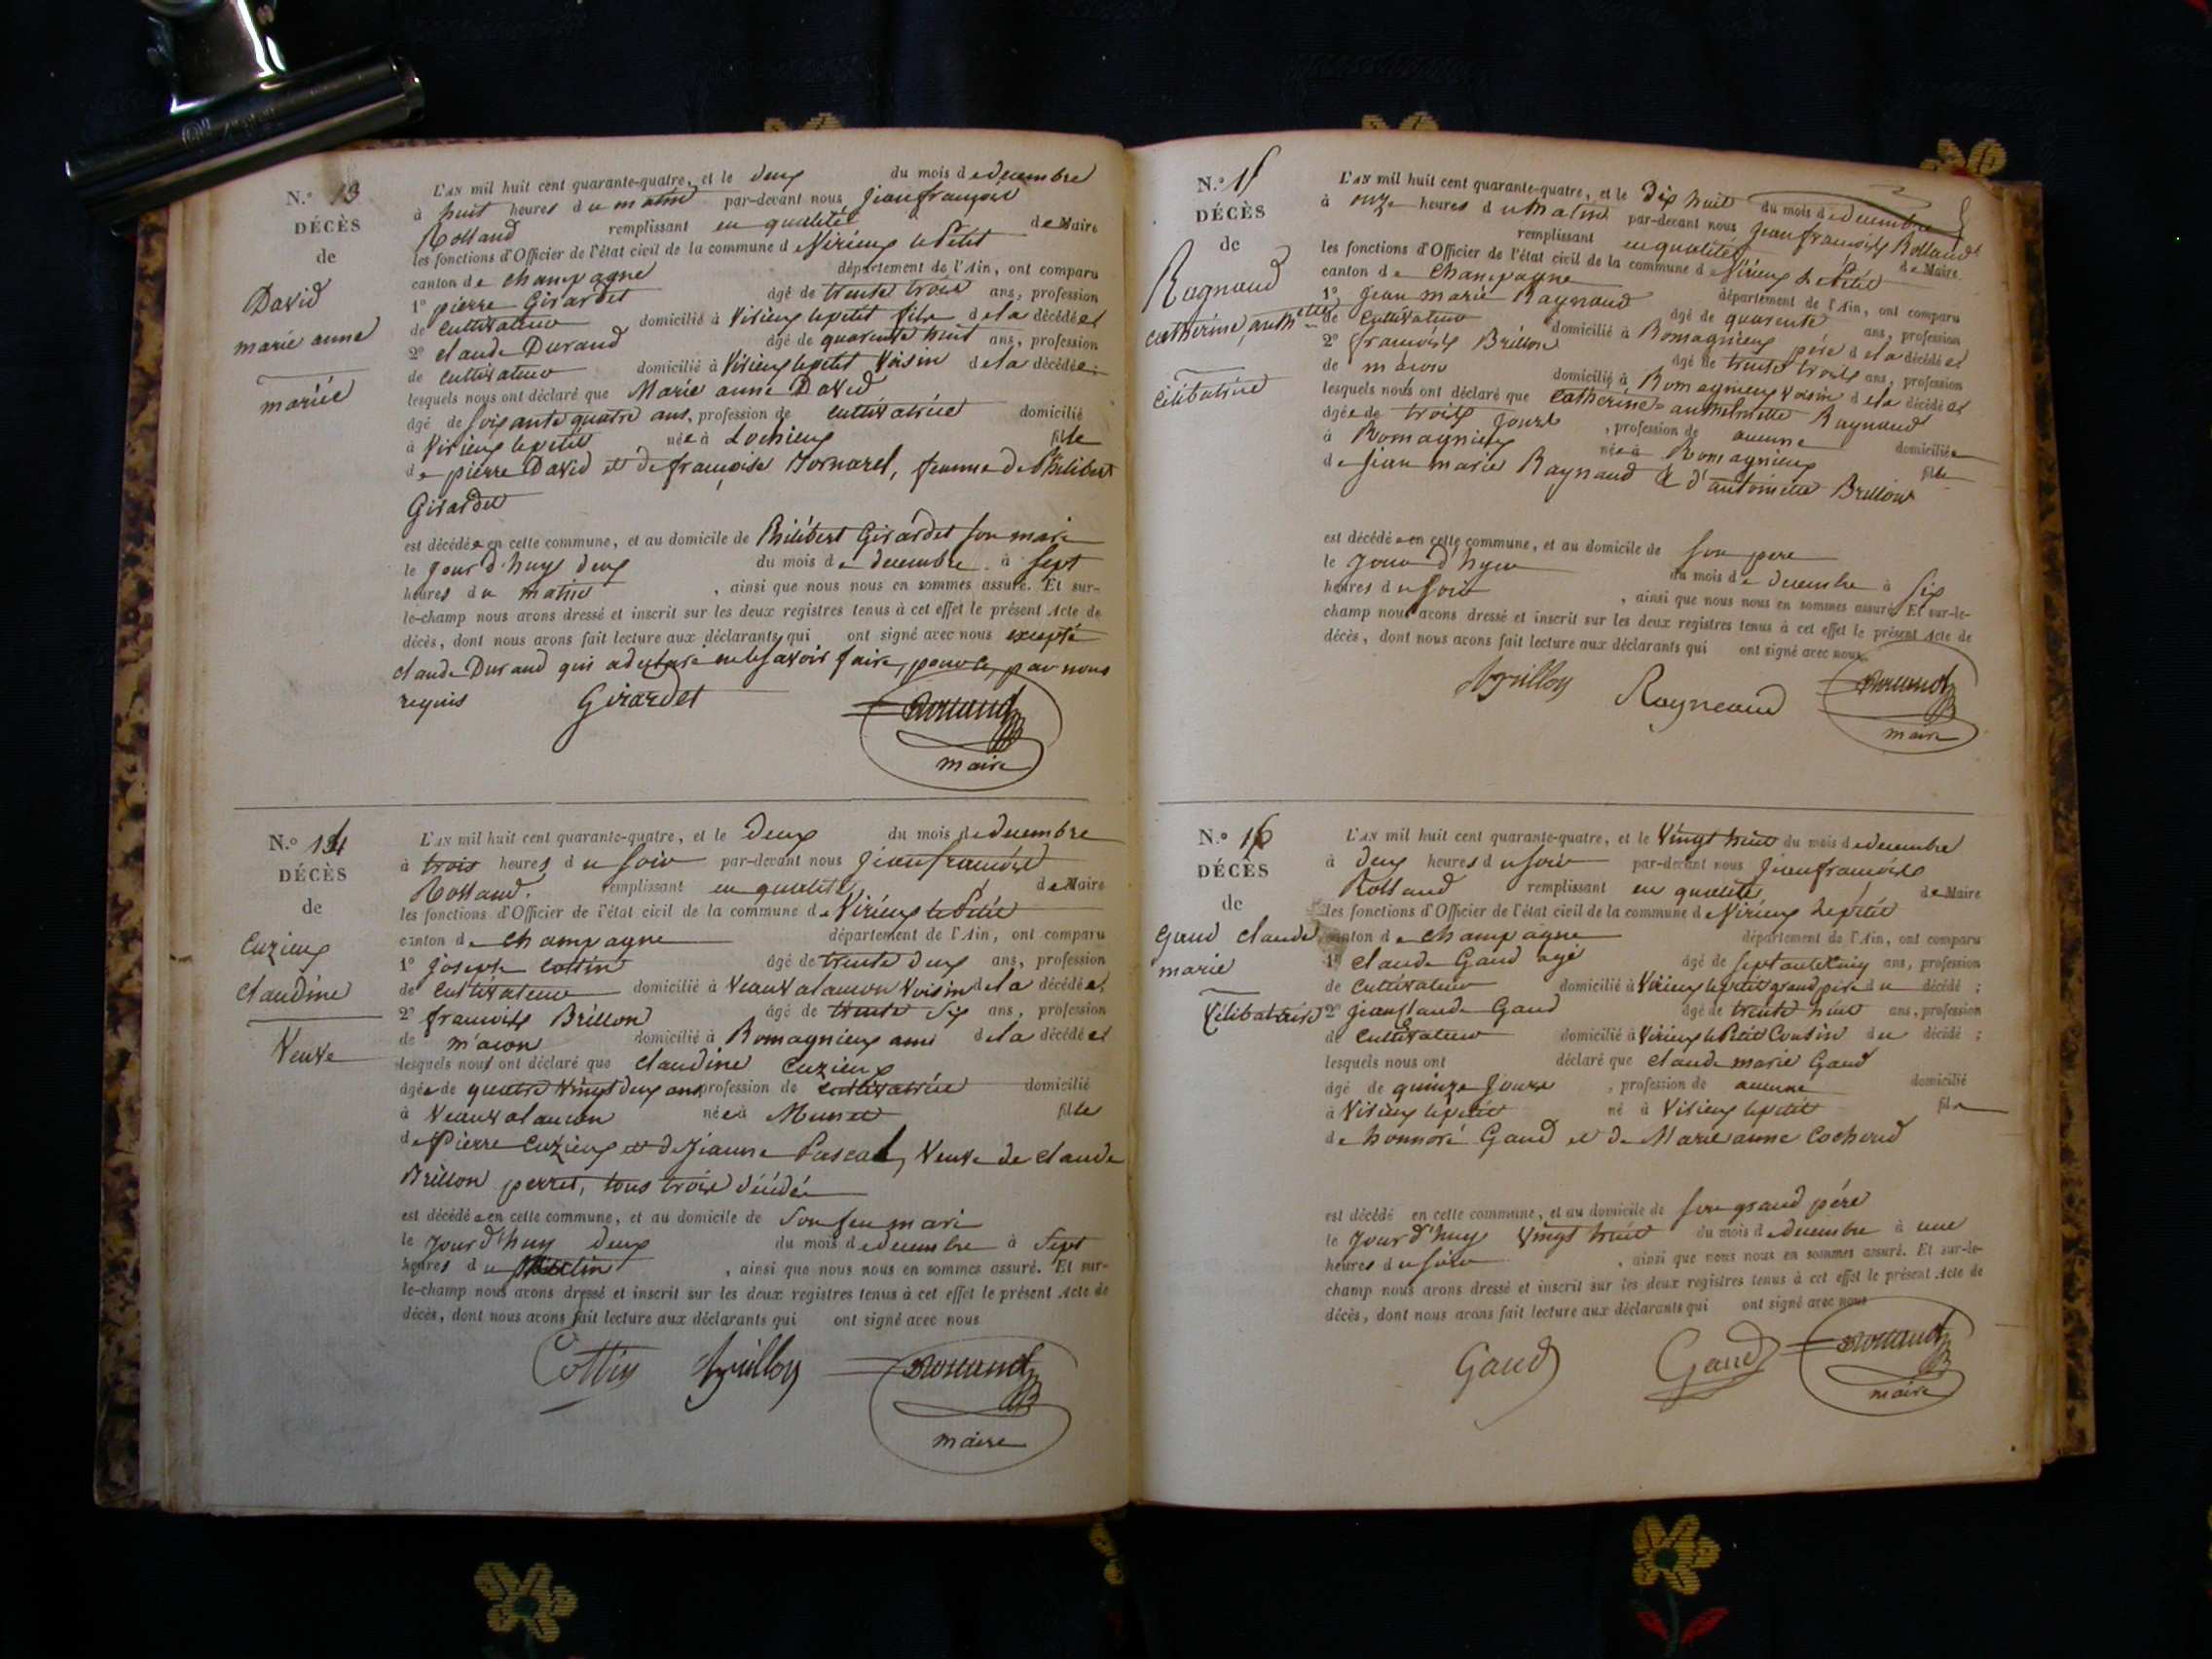 N.º 13
DÉCÈS
de
David
marie anne
mariée
L'AN mil huit cent quarante-quatre, et le deux du mois de decembre
à huit heures du matin par-devant nous jean françois
Rolland remplissant en qualité de Maire
les fonctions d'Officier de l'état civil de la commune de Virieux le Petit
canton de champagne département de l'Ain, ont comparu
1º pierre Girardet âgé de trente trois ans, profession
de cultivateur domicilié à Virieux le petit fils de la décédée et
2º claude Durand âgé de quarente huit ans, profession
de cultivateur domicilié à Virieux le petit Voisin de la décédée ;
lesquels nous ont déclaré que Marie anne David
âgé de soixante quatre ans, profession de cultivatrice domicilié
à Virieux le petit née à Lochieux fille
de pierre David et de françoise Jornarel, femme de Philibert
Girardet
est décédée en cette commune, et au domicile de Philibert Girardet son mari
le jour d'huy deux du mois de decembre à sept
heures du matin , ainsi que nous nous en sommes assuré. Et sur-
le-champ nous avons dressé et inscrit sur les deux registres tenus à cet effet le présent Acte de
décès, dont nous avons fait lecture aux déclarants qui ont signé avec nous excepté
claude Durand qui a declaré ne le savoir faire, pour ce par nous
requis Girardet Rolland
maire
N.º 14
DÉCÈS
de
Cuzieux
claudine
Veuve
L'AN mil huit cent quarante-quatre, et le deux du mois de decembre
à trois heures du soir par-devant nous jean françois
Rolland. remplissant en qualité de Maire
les fonctions d'Officier de l'état civil de la commune de Virieux le Petit
canton de champagne département de l'Ain, ont comparu
1º joseph Cottin âgé de trente deux ans, profession
de cultivateur domicilié à Veauvalancon Voisin de la décédée et
2º francois Brillon âgé de trente six ans, profession
de maçon domicilié à Romagnieux ami de la décédée et
lesquels nous ont déclaré que claudine Cuzieux
âgée de quatre vingt deux ans profession de cultivatrice domicilié
à Veauvalancon née à Munet fille
de Pierre Cuzieux et de jeanne Pascal, Veuve de claude
Brillon perret, tous trois décédés
est décédée en cette commune, et au domicile de son feu mari
le jour d'huy deux du mois de decembre à sept
heures du matin , ainsi que nous nous en sommes assuré. Et sur-
le-champ nous avons dressé et inscrit sur les deux registres tenus à cet effet le présent Acte de
décès, dont nous avons fait lecture aux déclarants qui ont signé avec nous
Cottin Brillon Rolland
maire
N.º 15
DÉCÈS
de
Raynaud
catherine, anthelmette
célibataire
L'AN mil huit cent quarante-quatre, et le dix huit du mois de decembre
à onze heures du matin par-devant nous jean francois Rolland
remplissant en qualité de Maire
les fonctions d'Officier de l'état civil de la commune de Virieux le Petit
canton de champagne département de l'Ain, ont comparu
1º jean marie Raynaud âgé de quarente ans, profession
de cultivateur domicilié à Romagnieux père de la décédée et
2º francois Brillon âgé de trente trois ans, profession
de maçon domicilié à Romagnieux voisin de la décédée et
lesquels nous ont déclaré que catherine anthelmette Raynaud
âgée de trois jours , profession de aucune domiciliée
à Romagnieux née à Romagnieux fille
de jean marie Raynaud & d'antoinette Brillon
est décédée en cette commune, et au domicile de son pere
le jour d'hyer du mois de decembre à six
heures du soir , ainsi que nous nous en sommes assuré. Et sur-le-
champ nous avons dressé et inscrit sur les deux registres tenus à cet effet le présent Acte de
décès, dont nous avons fait lecture aux déclarants qui ont signé avec nous
Brillon Rayneaud Rolland
maire
N.º 16
DÉCÈS
de
Gaud claude
marie
célibataire
L'AN mil huit cent quarante-quatre, et le vingt huit du mois de decembre
à deux heures du soir par-devant nous jean francois
Rolland remplissant en qualité de Maire
les fonctions d'Officier de l'état civil de la commune de Virieux le petit
canton de champagne département de l'Ain, ont comparu
1º claude Gaud agé âgé de septante cinq ans, profession
de cultivateur domicilié à Virieux le petit grand père du décédé ;
2º jean claude Gaud âgé de trente huit ans, profession
de cultivateur domicilié à Virieux le Petit Cousin du décédé ;
lesquels nous ont déclaré que claude marie Gaud
âgé de quinze jours , profession de aucune domicilié
à Virieux le petit né à Virieux le petit fils
de honnoré Gaud et de Marie anne Cochoud
est décédé en cette commune, et au domicile de son grand père
le jour d'huy vingt huit du mois de decembre à une
heures du soir , ainsi que nous nous en sommes assuré. Et sur-le-
champ nous avons dressé et inscrit sur les deux registres tenus à cet effet le présent Acte de
décès, dont nous avons fait lecture aux déclarants qui ont signé avec nous
Gaud Gaud Rolland
maire